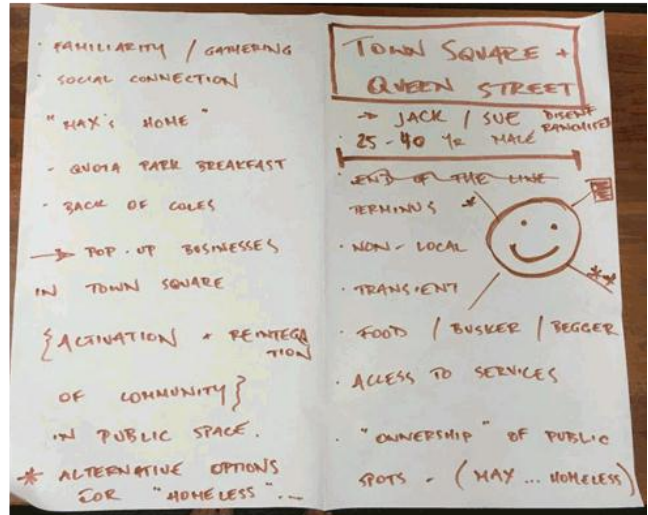 · FAMILIARITY / GATHERING
· SOCIAL CONNECTION
"MAX'S HOME"
- QUOTA PARK BREAKFAST
· BACK OF COLES
→ POP-UP BUSINESSES
IN TOWN SQUARE
{ACTIVATION + REINTEGA
TION
OF COMMUNITY}
IN PUBLIC SPACE.
* ALTERNATIVE OPTIONS
FOR "HOMELESS"...
TOWN SQUARE +
QUEEN STREET
→ JACK / SUE DISENF
RANCHISED
· 25-40 YR MALE
· END OF THE LINE
TERMINUS *
· NON-LOCAL
· TRANSIENT
· FOOD / BUSKER / BEGGER
· ACCESS TO SERVICES
· "OWNERSHIP" OF PUBLIC
SPOTS - (MAX... HOMELESS)